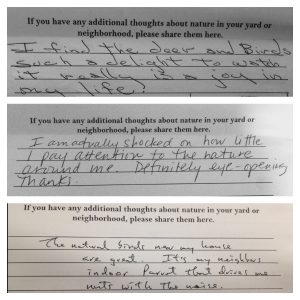 If you have any additional thoughts about nature in your yard or
neighborhood, please share them here.
I find the deer and Birds
such a delight to watch
it really is a joy in
my life!
If you have any additional thoughts about nature in your yard or
neighborhood, please share them here.
I am actually shocked on how little
I pay attention to the nature
around me. Definitely eye-opening
Thanks.
If you have any additional thoughts about nature in your yard or
neighborhood, please share them here.
The natural birds near my house
are great. It's my neighbors
indoor Parrot that drives me
nuts with the noise.